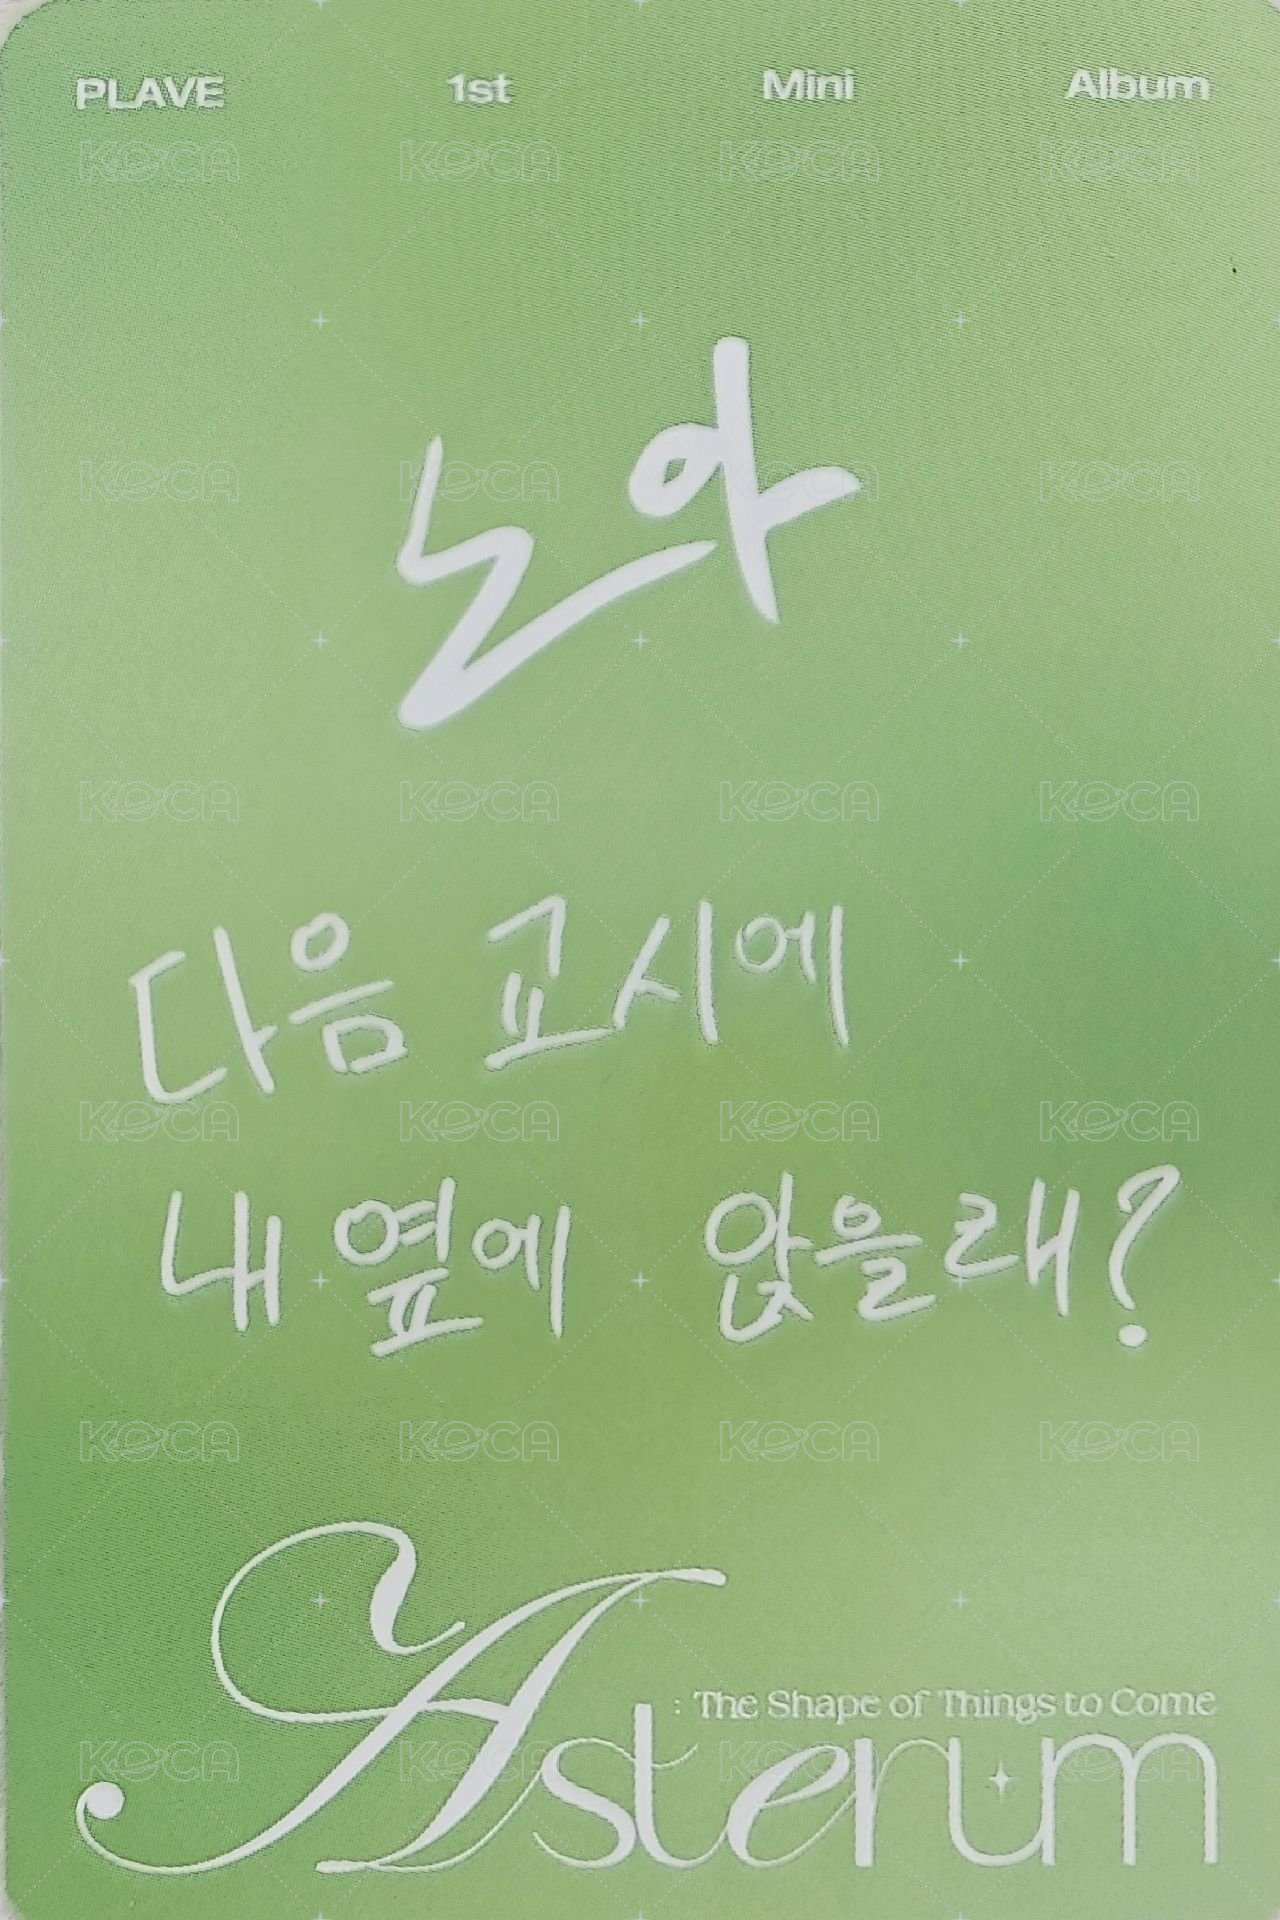 PLAVE 1st Mini Album
노아
다음 교시에
내 옆에 앉을래?
: The Shape of Things to Come
Asterum
KOCA KOCA KOCA KOCA
KOCA KOCA KOCA KOCA
KOCA KOCA KOCA KOCA
KOCA KOCA KOCA KOCA
KOCA KOCA KOCA KOCA
KOCA KOCA KOCA KOCA